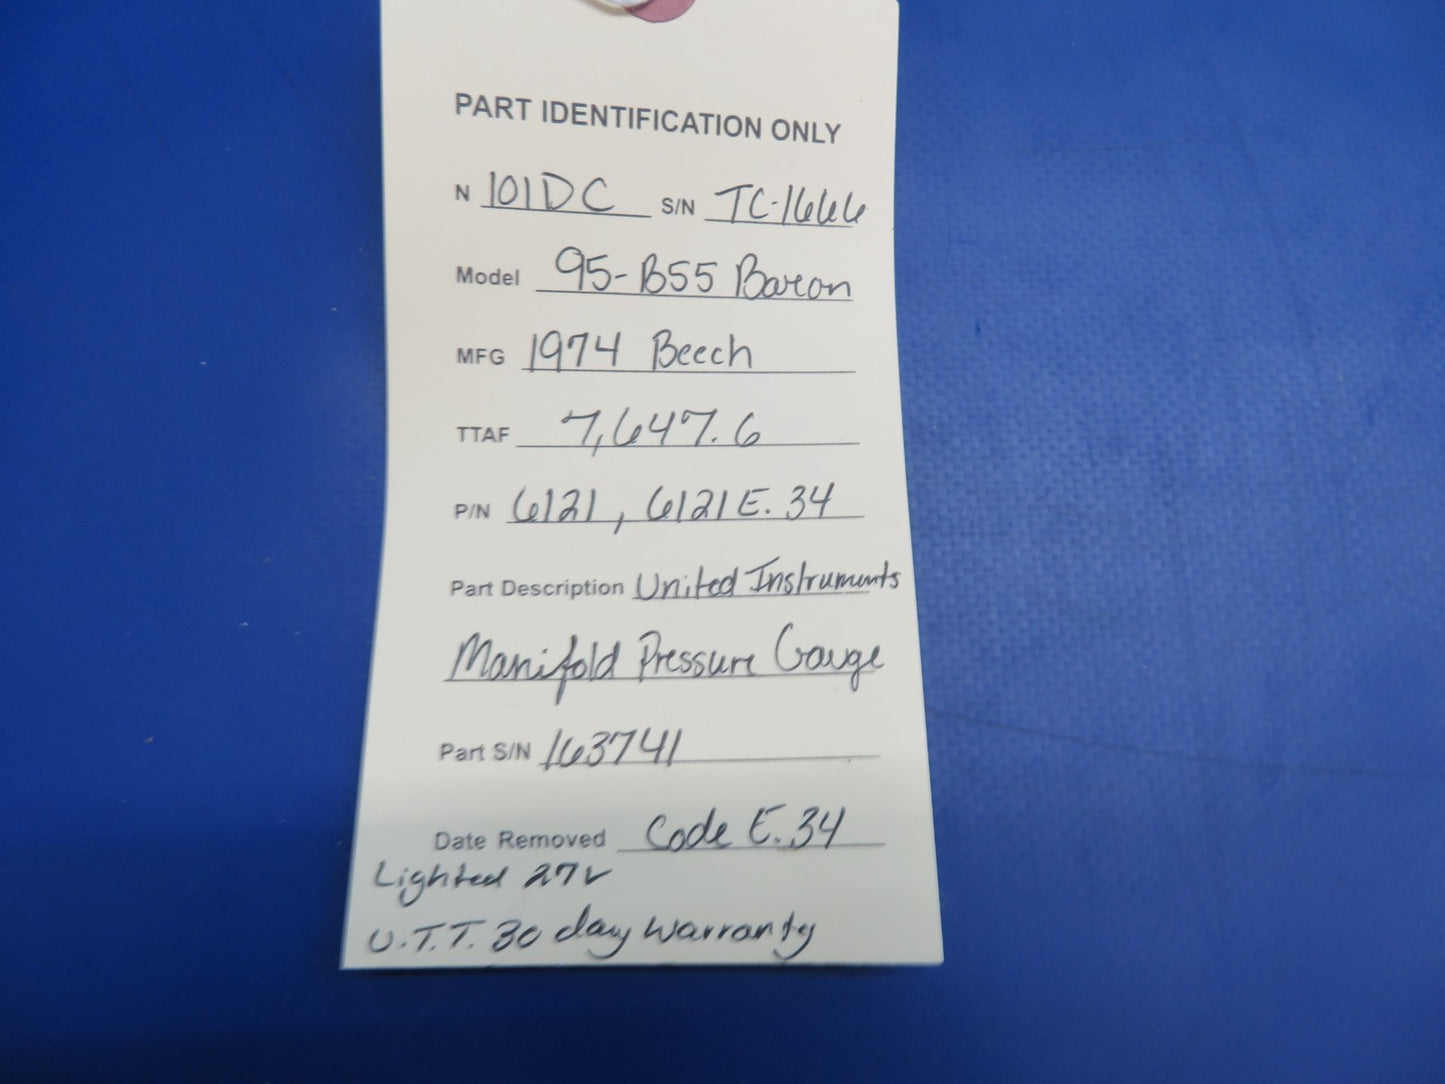 PART IDENTIFICATION ONLY
N 101DC S/N TC-1666
Model 95-B55 Baron
MFG 1974 Beech
TTAF 7,647.6
P/N 6121, 6121 E.34
Part Description United Instruments
Manifold Pressure Gauge
Part S/N 163741
Date Removed Code E.34
Lighted 27V
U.T.T. 30 day warranty